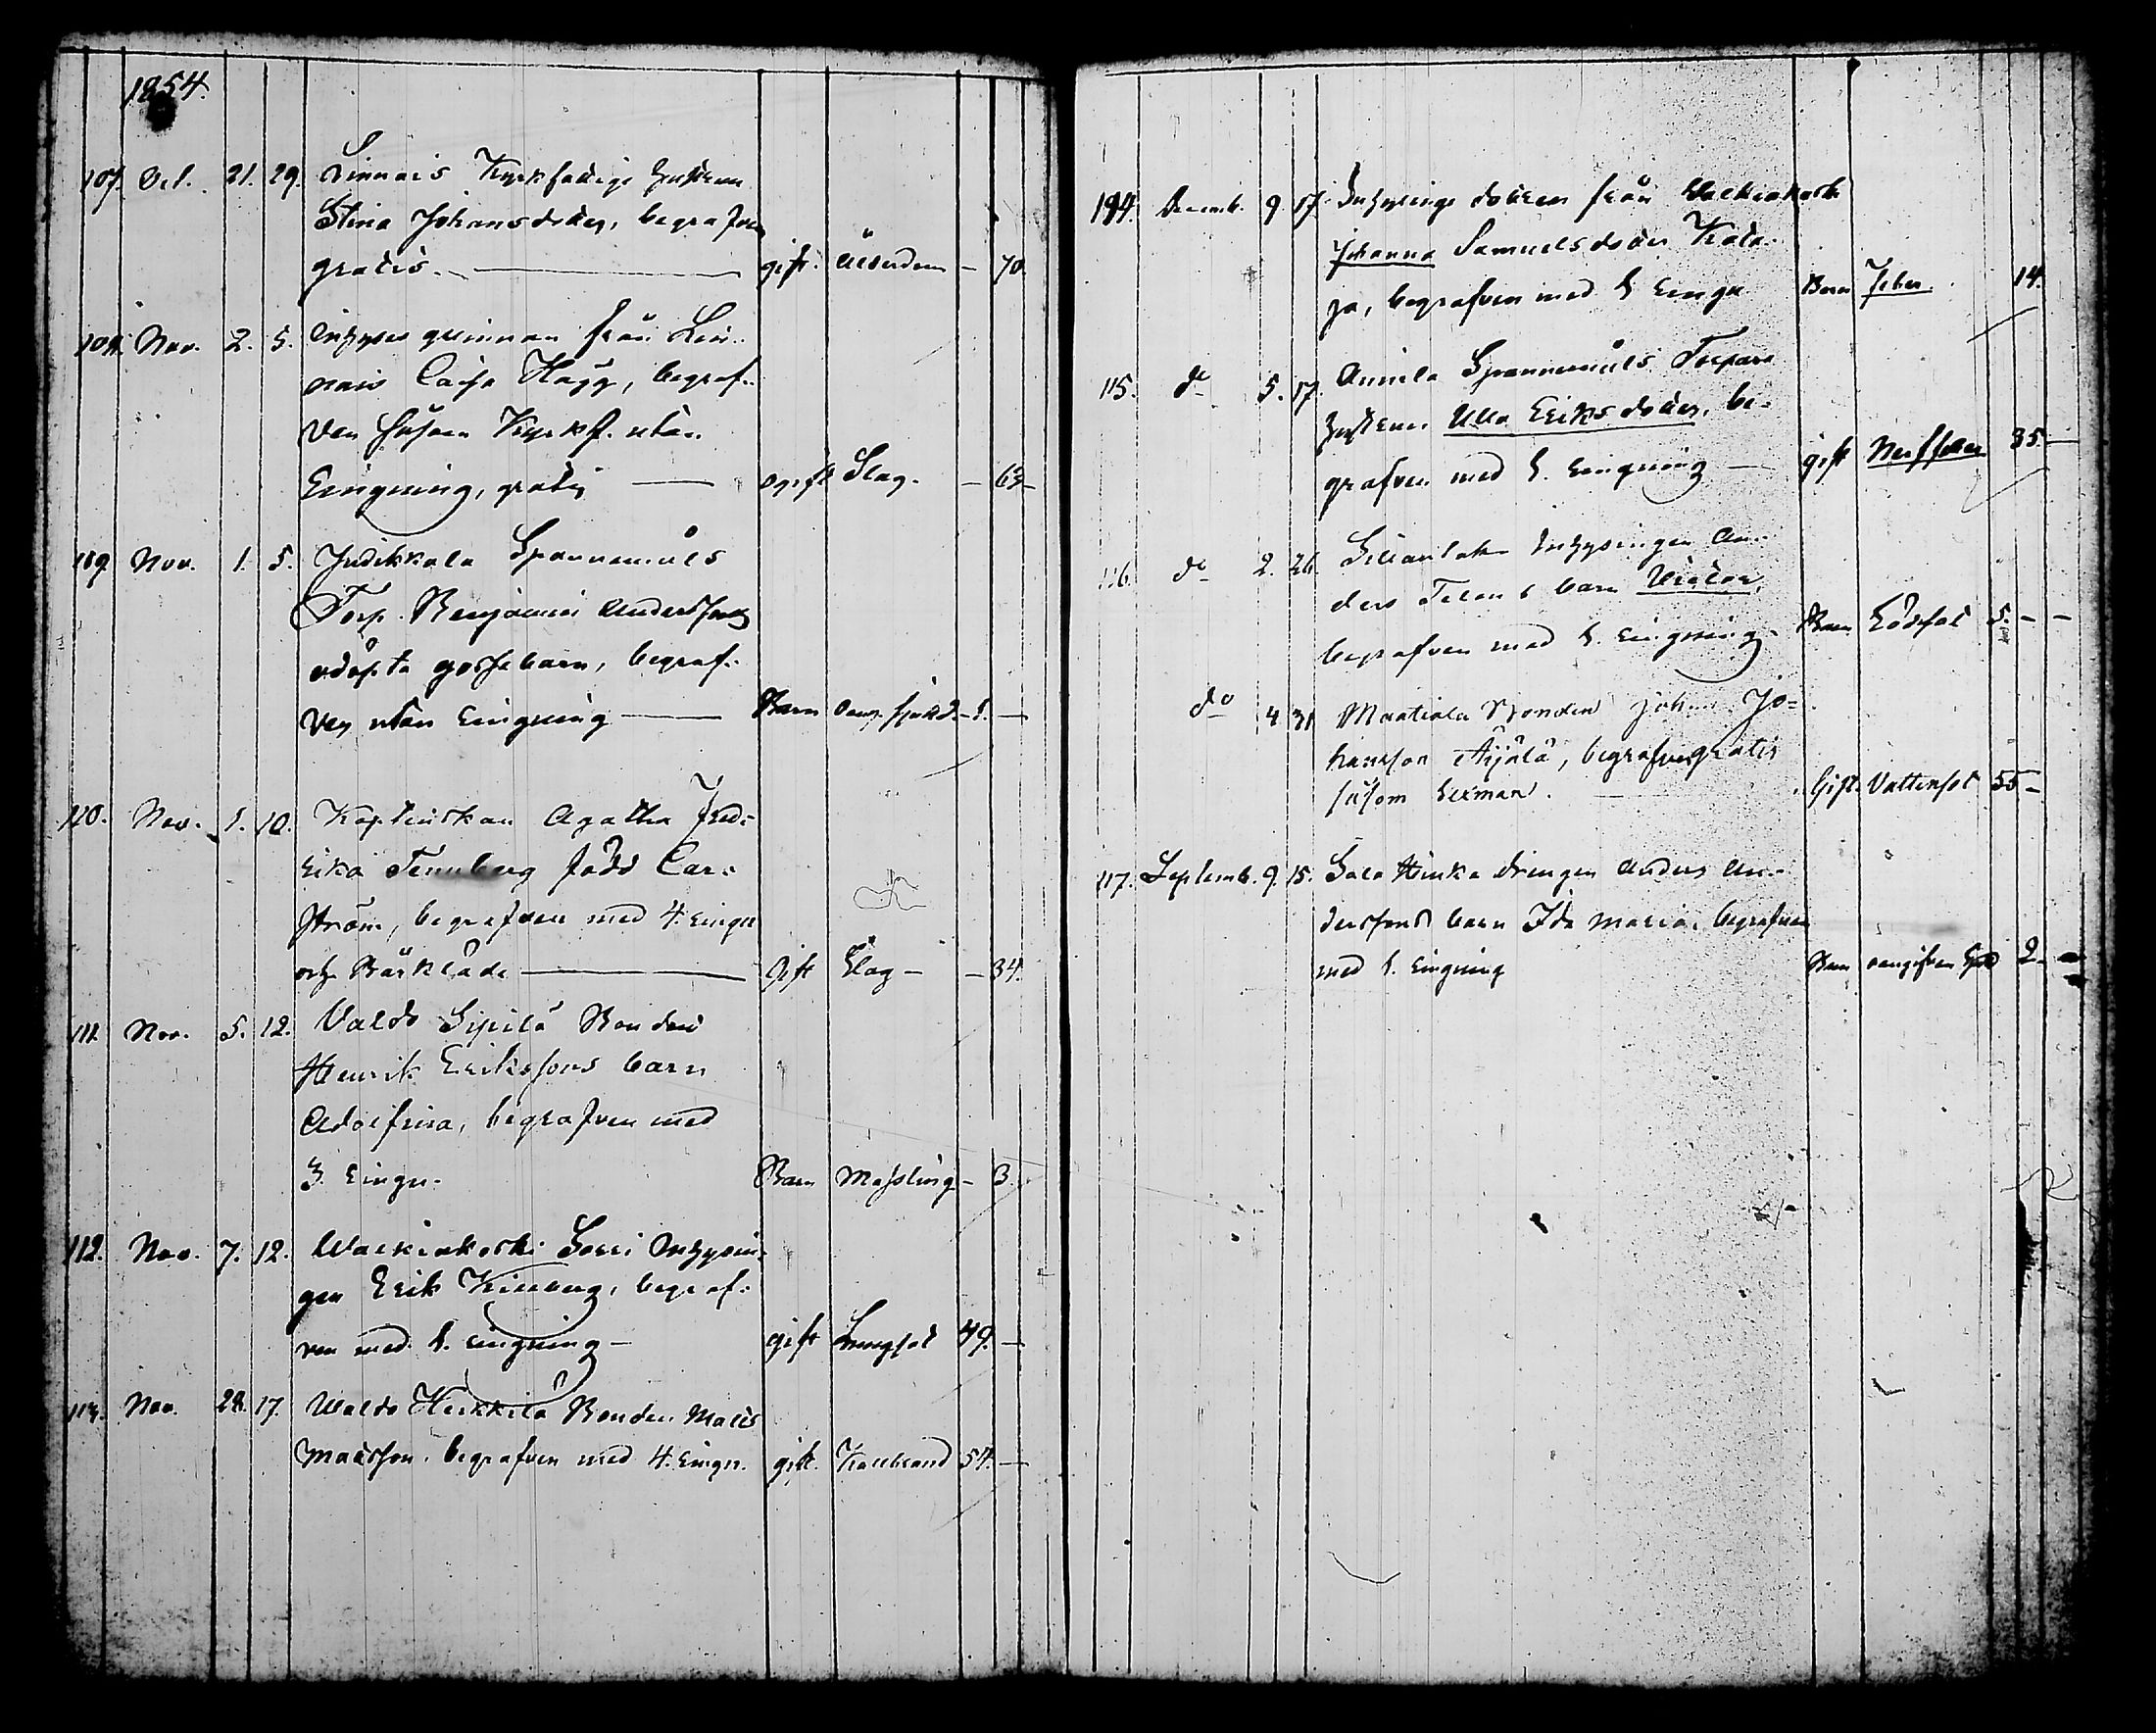 1854.
107. Oct. 21. 29. Linnais Kyrkfattige Hustrun
Stina Johansdotter, begrafven
gratis. gift. ålderdom - 70.
108. Nov. 2. 5. Inhyses qvinnan från Lin-
nais Caisa Hägg, begraf-
ven såsom Kyrkf. utan
Ringning, gratis ogift Slag. - 63 -
109 Nov. 1. 5. Judikkala Spannemåls
Torp. Benjamin Anderssons
odöpta gossebarn, begraf-
ven utan Ringning Barn
110. Nov. 1. 10. Kaplinskan Agatha Fred-
rika Tennberg född Car-
ström, begrafven med 4. ringn
och Bårkläde gift Slag - - 34.
111. Nov. 5. 12. Valdo Sipilä Bonden
Henrik Erikssons barn
Adolfina, begrafven med
3. ringn. Barn Messling - 3.
112. Nov. 7. 12. Walkiakoski Inhysin-
gen Erik begraf-
ven med 1. ringning - gift Lungsot 49. -
113. Nov. 17. Waldo Heikkilä Bonden Matts
Mattsson, begrafven med 4. ringn. gift. Kallbrand 54. -
114. Decemb. 9. 17. Inhysinge dottren från Walkiakoski
Johanna Samuelsdotter
begrafven med 1 ringn Barn Feber. 14.
115. do 5. 17. Annila Spannemåls Torpare
hustrun Ulla Eriksdotter, be-
grafven med 1. ringning - gift Nerffeber 35. -
116. do 2. 26. Inhysingen An-
ders barn
begrafven med 1. ringning. Barn Rödsot 5. - -
do 4 31 Mattiala Bonden Johan Jo-
hansson Äijälä, begrafven gratis
såsom Sexman. Gift. Vattensot 55 -
117. Septemb. 9. 15. Hinka drengen Anders An-
derssons barn Ida Maria, begrafven
med 1. ringning Barn oangifven 2. -